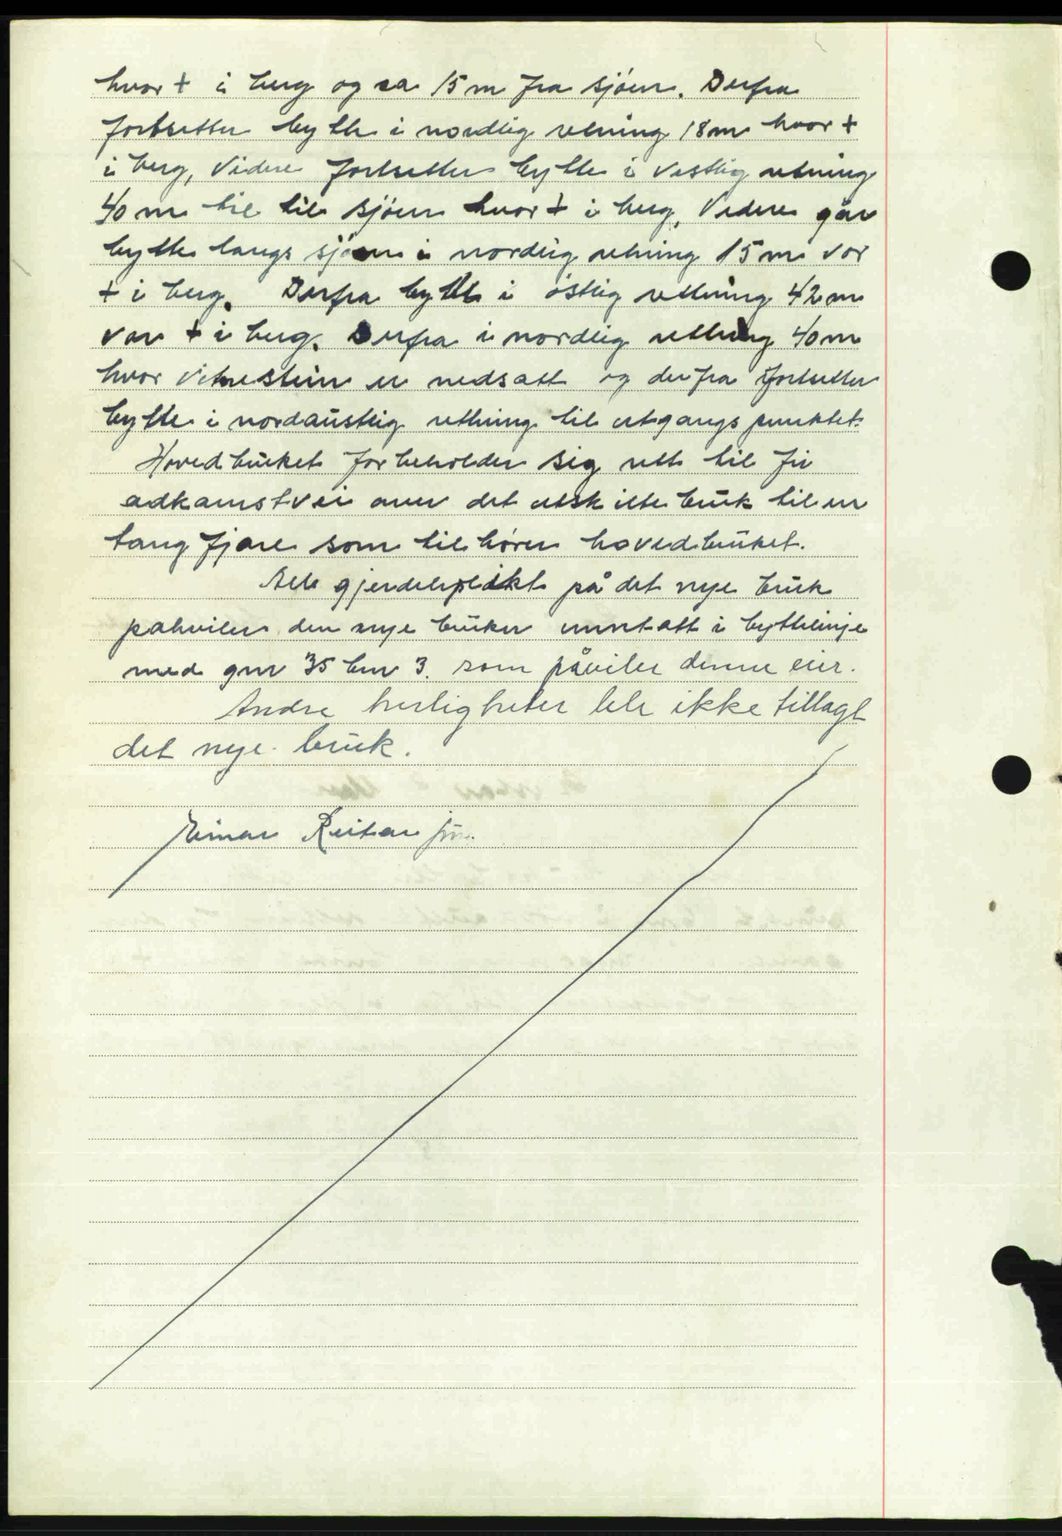 hvor + i berg og ca 15 m fra sjøen. Derfra
fortsetter bytte i nordlig retning 18 m hvor +
i berg, Videre fortsetter bytte i vestlig retning
40 m til til sjøen hvor + i berg. Videre går
bytte langs sjøen i nordlig retning 15 m vor
+ i berg. Derfra bytte i östlig retning 42 m
vor + i berg. Derfra i nordlig retning 40 m
hvor vitnestein er nedsatt og derfra fortsetter
bytte i nordaustlig retning til utgangspunktet.
Hovedbruket forbeholder sig rett til fri
adkomstvei over det utskilte bruk til en
tangfjære som tilhører hovedbruket.
Alle gjerdeplikt på det nye bruk
pahviler den nye bruker unntatt i byttelinje
med gnr 35 bnr 3. som påviler denne eier.
Andre herligheter ble ikke tillagt
det nye bruk.
Einar Reitan jun.